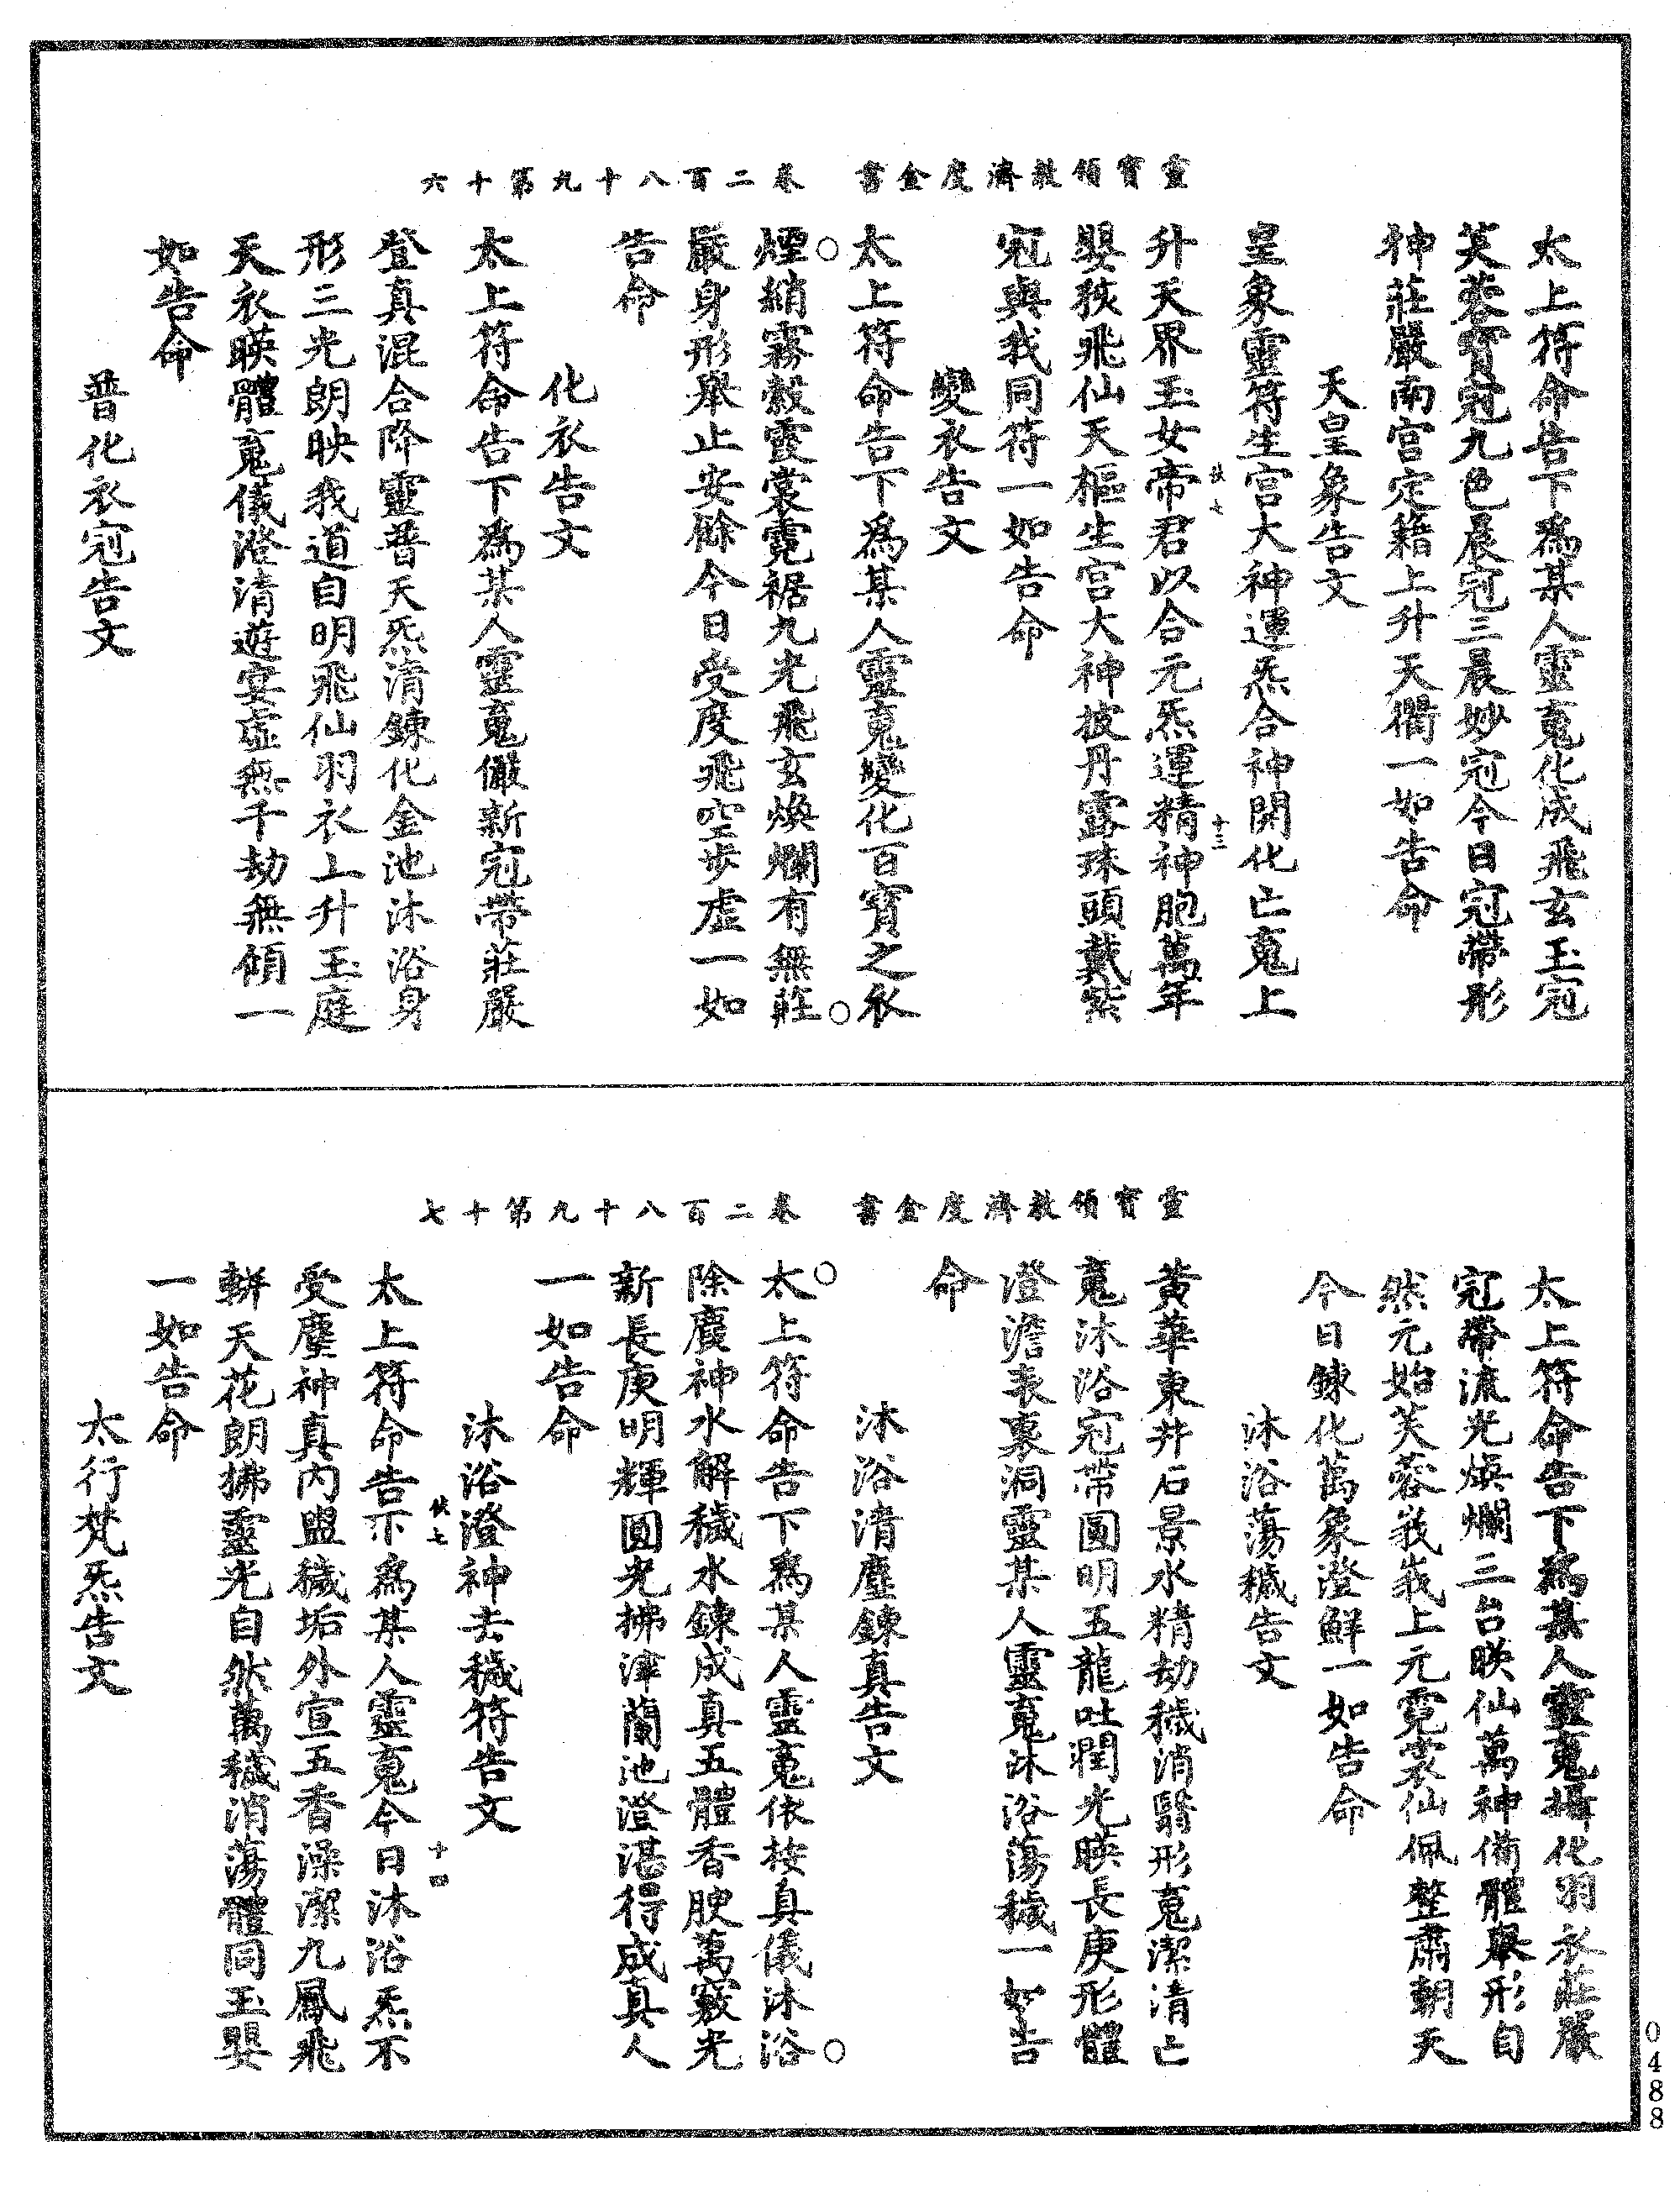 靈寶領教濟度金書　卷二百八十九第十六
太上符命告下為某人靈䰟化成飛玄玉冠
芙蓉寶冠九色晨冠三晨妙冠今日冠帶形
神莊嚴南宮定籍上升天衢一如告命
天皇象告文
皇象靈符生宮大神運炁合神開化亡䰟上
升天界玉女帝君以合元炁運精神胞萬年
嬰孩飛仙天樞生宮大神披丹露珠頭戴紫
冠與我同符一如告命
變衣告文
太上符命告下為某人靈䰟變化百寶之衣
煙綃霧縠霞裳霓裾九光飛玄煥爛有無莊
嚴身形舉止安徐今日受度飛空步虛一如
告命
化衣告文
太上符命告下為某人靈䰟儼新冠帶莊嚴
登真混合降靈普天炁清鍊化金池沐浴身
形三光朗映我道自明飛仙羽衣上升玉庭
天衣暎體䰟儀澄清遊宴虛無千劫無傾一
如告命
普化衣冠告文
十三
靈寶領教濟度金書　卷二百八十九第十七
太上符命告下為某人靈䰟攝化羽衣莊嚴
冠帶流光煥爛三台暎仙萬神備體舉形自
然元始芙蓉峩峩上元霓裳仙佩整肅朝天
今日鍊化萬象澄鮮一如告命
沐浴蕩穢告文
黃華東井石景水精劫穢消翳形䰟潔清亡
䰟沐浴冠帶圓明五龍吐潤光暎長庚形體
澄澹表裏洞靈某人靈䰟沐浴蕩穢一如告
命
沐浴清塵鍊真告文
太上符命告下為某人靈䰟依按真儀沐浴
除塵神水解穢水鍊成真五體香腴萬竅光
新長庚明輝圓光拂津蘭池澄湛得成真人
一如告命
沐浴澄神去穢符告文
太上符命告下為某人靈䰟今日沐浴炁不
受塵神真內盥穢垢外宣五香澡潔九鳳飛
軿天花朗拂靈光自然萬穢消蕩體同玉嬰
一如告命
太行梵炁告文
十四
0488